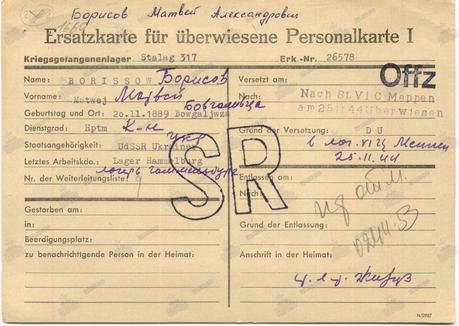 Борисов Матвей Александрович
Ersatzkarte für überwiesene Personalkarte I
Kriegsgefangenenlager Stalag 317 Erk.-Nr. 26578
Offz
Name: BORISSOW Борисов
Vorname: Matwej Матвей
Geburtstag und Ort: 20.11.1889 Bowgaljwza Бовгальвца
Dienstgrad: Hptm К-н
Staatsangehörigkeit: UdSSR Ukrainer укр
Letztes Arbeitskdo.: Lager Hammelburg
лагерь Гаммельбург
Nr. der Weiterleitungsliste: 9
Gestorben am:
in:
Beerdigungsplatz:
zu benachrichtigende Person in der Heimat:
SR
Versetzt am:
Nach: Nach St.VI C Meppen
am 25.11.44 überwiesen
Grund der Versetzung: DU
в лаг. VI Ц Меппен
25.11.44
Entlassen am:
Nach:
Grund der Entlassung:
Anschrift in der Heimat:
N/0987